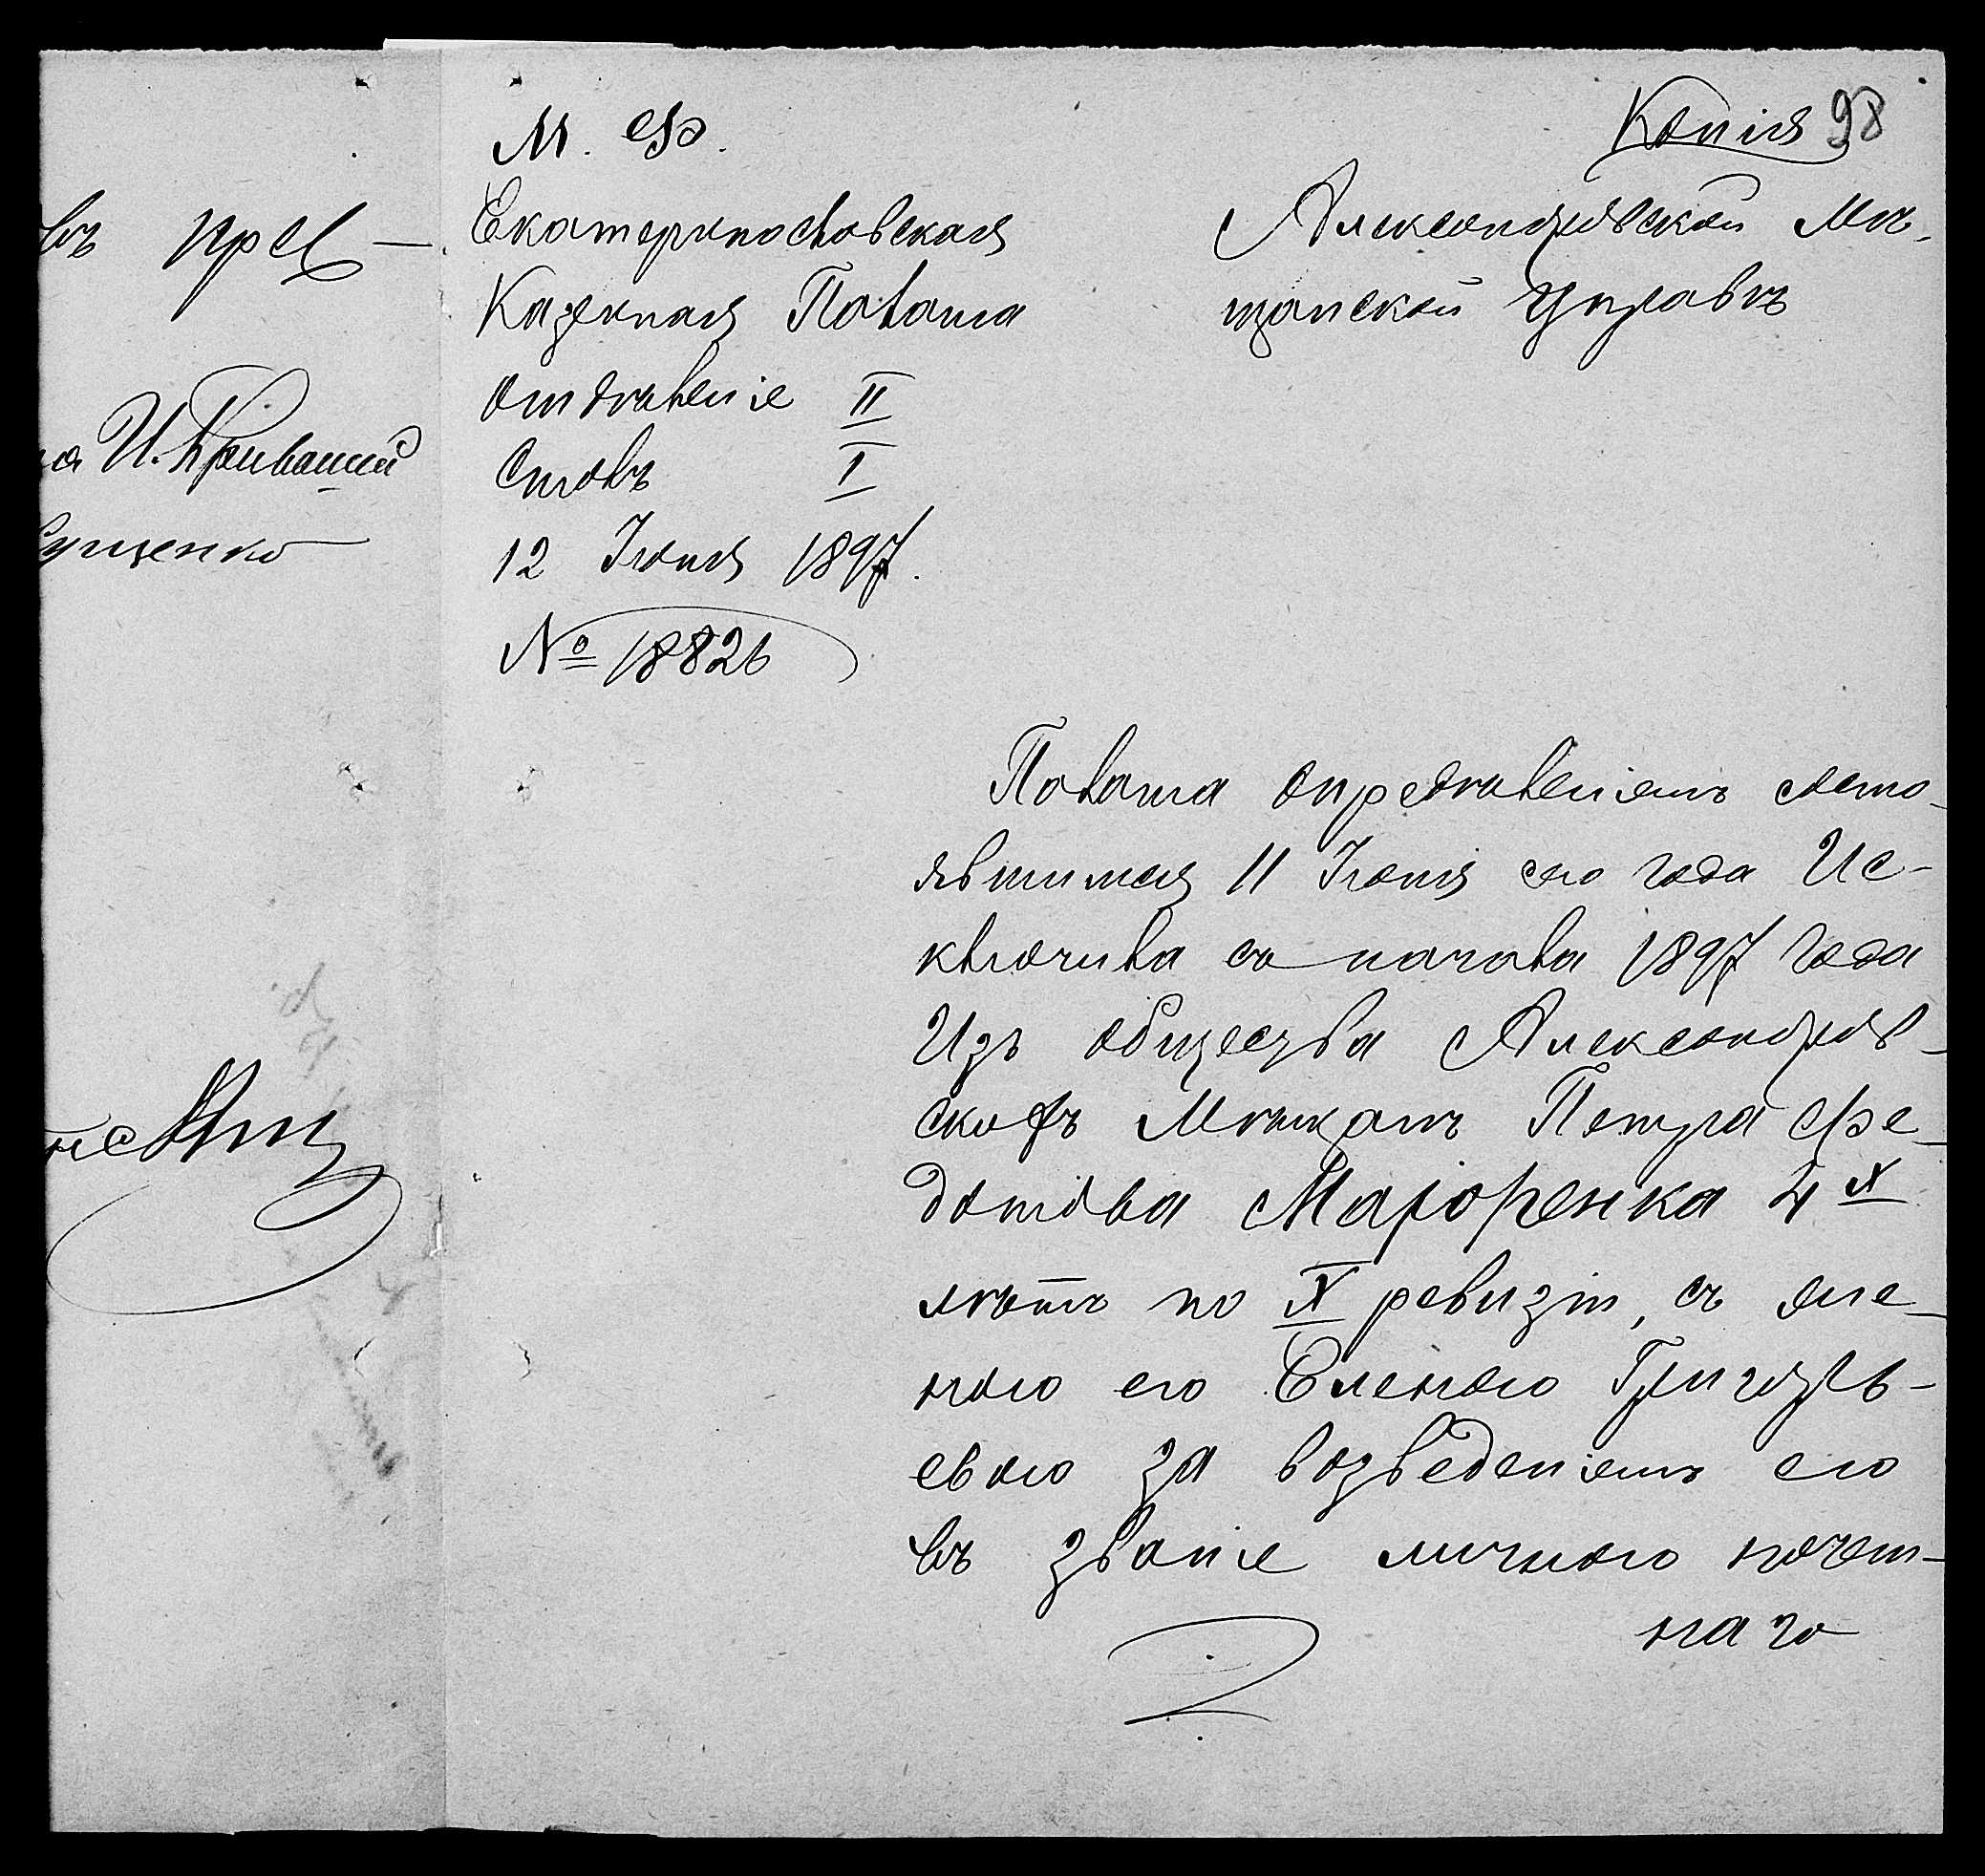 Копія 98
М. Ф.
Екатеринославская
Казенная Палата
Отдѣленіе II
Столъ I
12 Іюня 1897.
№ 18826
Александровской Мѣ-
щанской Управѣ
Палата опредѣленіемъ состо-
явшимся 11 Іюня сего года Ис-
ключила съ начала 1897 года
Изъ общества Александров-
скихъ Мѣщанъ Петра Фе-
дотова Маіоренка 4х
лѣтъ по X ревизіи, съ же-
ною его Еленою Григорь-
евою за возведеніемъ его
въ званіе личнаго почет-
наго
въ пред-
И. Криваший
ущенко